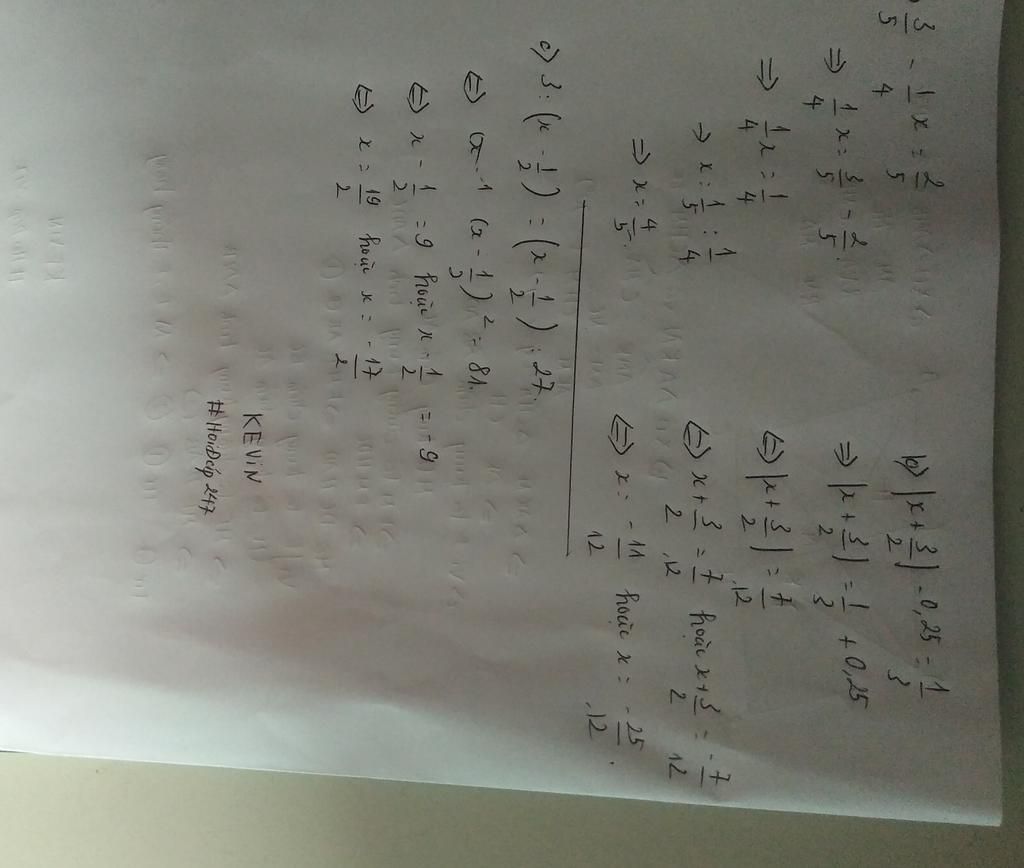 ) 3/5 - 1/4 x = 2/5
=> 1/4 x = 3/5 - 2/5.
=> 1/4 x = 1/4
=> x = 1/5 : 1/4
=> x = 4/5.
b) |x + 3/2| - 0,25 = 1/3
=> |x + 3/2| = 1/3 + 0,25
<=> |x + 3/2| = 7/12
<=> x + 3/2 = 7/12 hoặc x + 3/2 = -7/12
<=> x = -11/12 hoặc x = -25/12.
c) 3 : (x - 1/2) = (x - 1/2) : 27.
<=> (x - 1/2)² = 81.
<=> x - 1/2 = 9 hoặc x - 1/2 = -9
<=> x = 19/2 hoặc x = -17/2
KEViN
#HoiĐáp 247